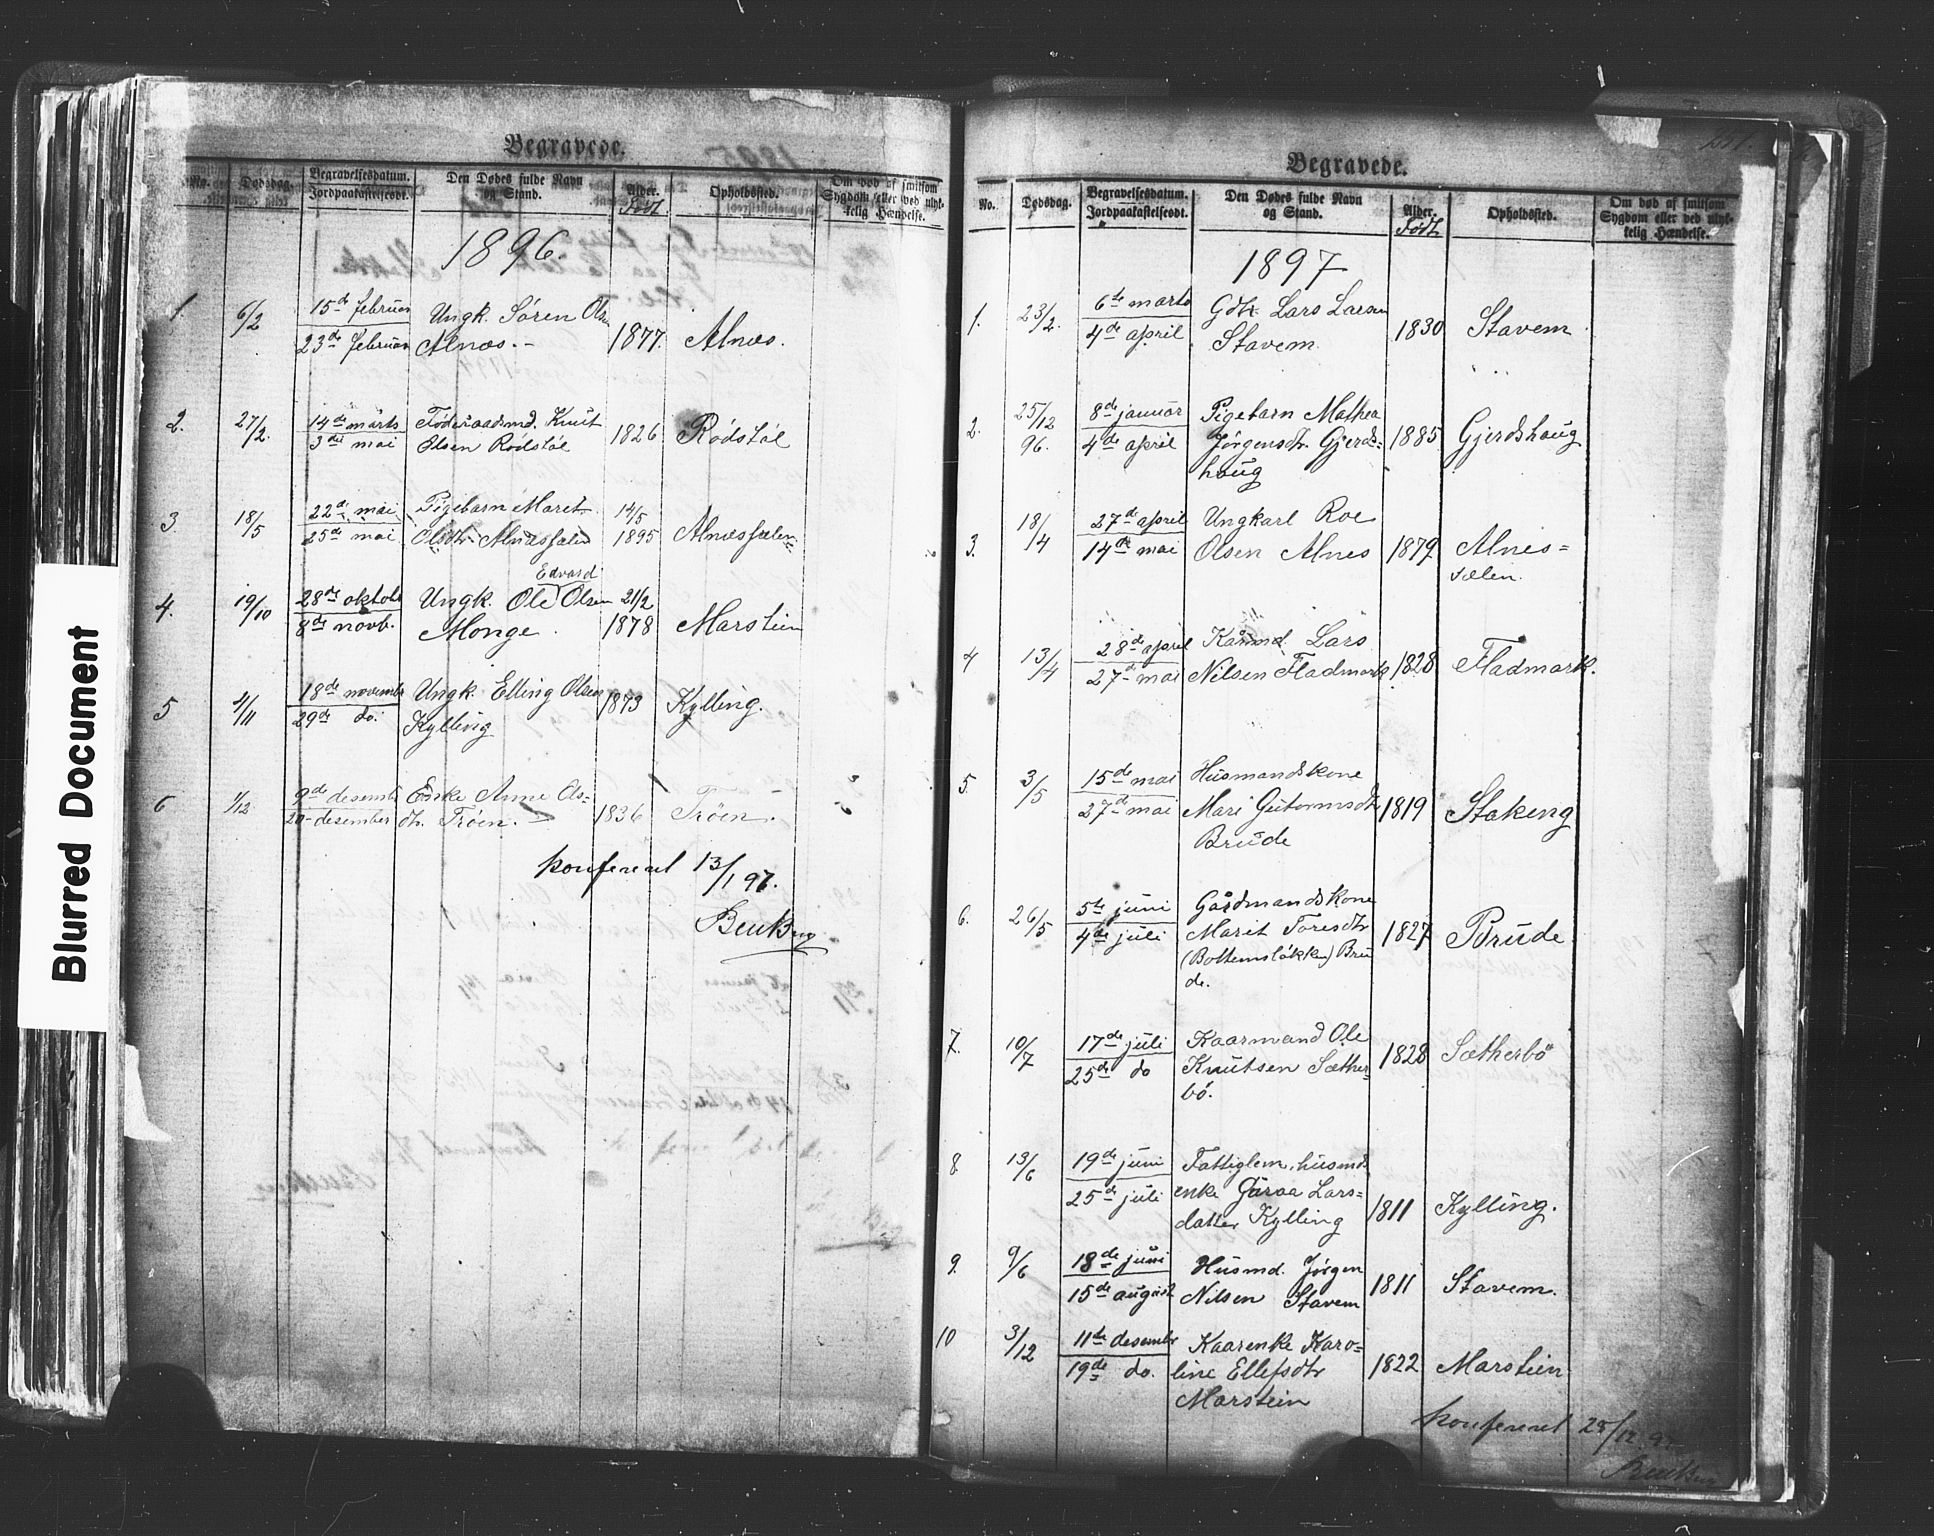 Blurred Document
Begravede.
No. Dødsdag. Begravelsesdatum. Jordpaakastelsesdt. Den Dødes fulde Navn og Stand. Alder. Født Opholdssted. Om død af smitsom Sygdom eller ved ulykkelig Hændelse.
1896.
1. 6/2 15de februar Ungk. Søren Olsn
23de februar Alnæs. - 1877. Alnæs.
2. 27/2. 14de marts Føderaadsmd. Knut
3de mai Olsen Rødstøl 1826 Rødstøl
3 18/5 22de mai Pigebarn Marit 14/5
25de mai Olsdtr Alnæssælen 1895 Alnæssælen
Edvard
4. 19/10 28de oktobr Ungk. Ole Olsen 21/2
8de novb. Monge. 1878 Marstein
5 4/11 18de novembr Ungk. Elling Olsen 1873 Kylling.
29de do. Kylling
6 1/12 9de desembr Enke Anne Ols=
20- desember dtr. Trøen. - 1836 Trøen.
konfereret 13/1 97.
Begravede.
No. Dødsdag. Begravelsesdatum. Jordpaakastelsesdt. Den Dødes fulde Navn og Stand. Alder. Født Opholdssted. Om død af smitsom Sygdom eller ved ulykkelig Hændelse.
1897
1. 23/2. 6te marts Gdbr. Lars Larsen
4de april Stavem. 1830 Stavem
2. 25/12 8de januar Pigebarn Mathea
96. 4de april Jørgensdtr. Gjerds= 1885 Gjerdshaug
haug
3. 18/4 27de april Ungkarl Roe
14de mai Olsen Alnes 1879 Alnes=
sælen.
4 13/4 28de april Kaarmd. Lars
27de mai Nilsen Fladmark 1828 Fladmark.
5. 3/5 15de mai Husmandskone
27de mai Mari Gutormsdtr 1819 Stakeng
Brude
6. 26/5 5te juni Gårdmandskone
4de juli Marit Toresdtr 1827 Brude
(Bottensløkken) Bru
de.
7. 10/7 17de juli Kaarmand Ole
25de do Knutsen Sæther= 1828 Sætherbø
bø.
8 13/6 19de juni Fattiglem, husmds
25de juli enke Guroa Lars=
datter Kylling 1811 Kylling.
9. 9/6 18de juni Husmd. Jørgen
15de august Nilsen Stavem 1811 Stavem.
10 3/12 11te desembr Kaarenke Karo=
19de do. line Ellefsdtr 1822 Marstein
Marstein
konfereret 28/12 97